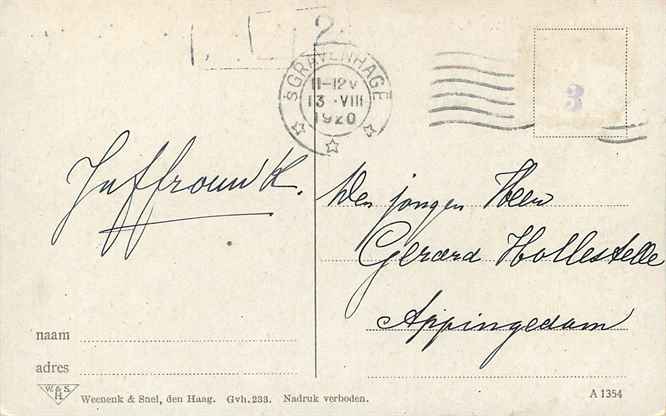 2
'SGRAVENHAGE
11-12V
13 ·VIII
1920
3
Juffrouw K.
Den jongen Heer
Gerard Hollestelle
Appingedam
naam
adres
W & S
H
Weenenk & Snel, den Haag. Gvh. 233. Nadruk verboden.
A 1354